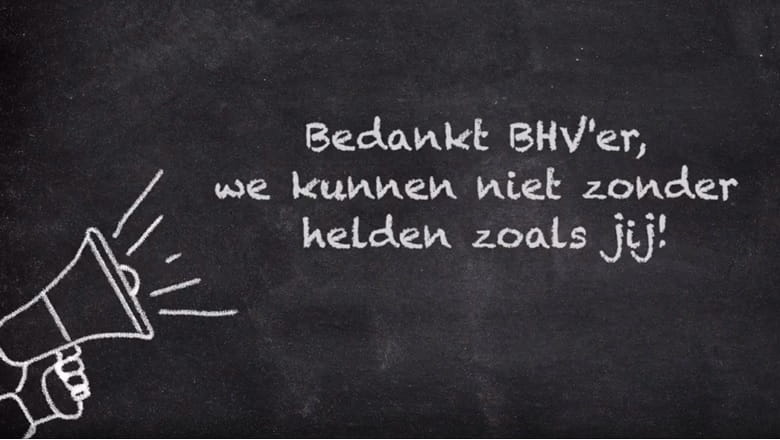 Bedankt BHV'er,
we kunnen niet zonder
helden zoals jij!